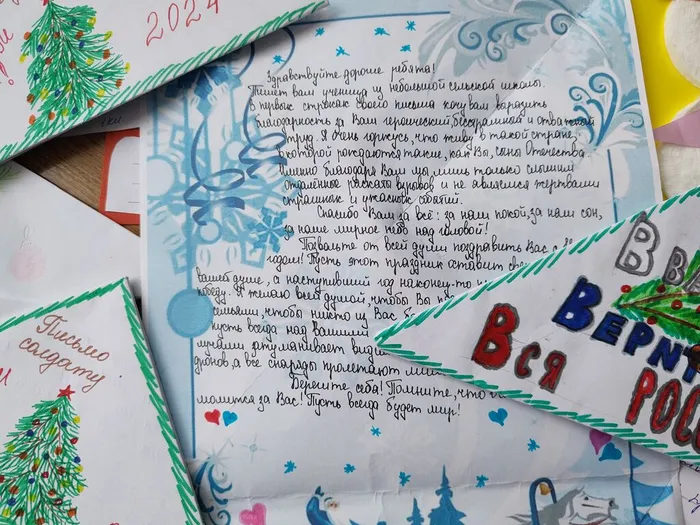 2024
Здравствуйте дорогие ребята!
Пишет вам ученица из небольшой сельской школы.
В первых строках своего письма хочу вам выразить
благодарность за Вам героический, бесстрашный и отважный
труд. Я очень горжусь, что живу в такой стране,
в которой рождаются такие, как Вы, сыны Отечества.
Именно благодаря Вам мы лишь только слышим
отдалённые раскаты взрывов и не являемся жертвами
страшных и ужасных событий.
Спасибо Вам за всё: за наш покой, за наш сон,
за наше мирное небо над головой!
Позвольте от всей души поздравить Вас с
годом! Пусть этот праздник оставит
вашей душе, а наступивший год наконец-то
победу. Я желаю всей душой, чтобы Вы
семьями, чтобы никто из Вас
пусть всегда над Вашими
лучами
дронов, а все снаряды пролетают
Берегите себя! Помните, что
молится за Вас! Пусть всегда будет мир!
Письмо
солдату
В
Верн
Вся
Росс